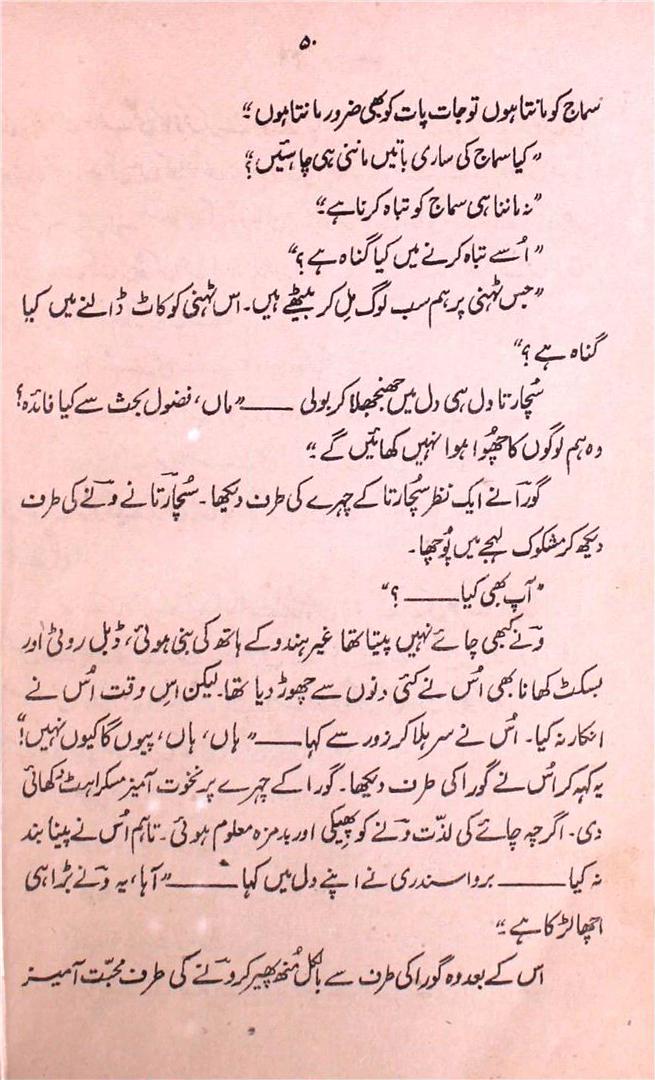 ۵۰
سماج کو مانتا ہوں تو جات پات کو بھی ضرور مانتا ہوں“
”کیا سماج کی ساری باتیں ماننی ہی چاہئیں؟
”نہ ماننا ہی سماج کو تباہ کرنا ہے“
”اُسے تباہ کرنے میں کیا گناہ ہے؟“
”جس ٹہنی پر ہم سب لوگ مِل کر بیٹھے ہیں۔ اس ٹہنی کو کاٹ ڈالنے میں کیا
گناہ ہے؟“
سُچارتا دل ہی دل میں جھنجھلا کر بولی ——”ماں، فضول بحث سے کیا فائدہ؟
وہ ہم لوگوں کا چھُوا ہوا نہیں کھائیں گے“
گورا نے ایک نظر سُچارتا کے چہرے کی طرف دیکھا۔ سُچارتا نے ونے کی طرف
دیکھ کر مشکوک لہجے میں پُوچھا۔
”آپ بھی کیا——؟“
ونے کبھی چائے نہیں پیتا تھا غیر ہندو کے ہاتھ کی بنی ہوئی، ڈبل روٹی اور
بسکٹ کھانا بھی اُس نے کئی دنوں سے چھوڑ دیا تھا۔ لیکن اِس وقت اُس نے
انکار نہ کیا۔ اُس نے سر ہلا کر زور سے کہا——”ہاں، ہاں، پیوں گا کیوں نہیں!“
یہ کہہ کر اُس نے گورا کی طرف دیکھا۔ گورا کے چہرے پر نخوت آمیز مسکراہٹ دکھائی
دی۔ اگرچہ چائے کی لذّت ونے کو پھیکی اور بدمزہ معلوم ہوئی۔ تاہم اُس نے پینا بند
نہ کیا—— برواسندری نے اپنے دل میں کہا——”آہا، یہ ونے بڑا ہی
اچھا لڑکا ہے“
اس کے بعد وہ گورا کی طرف سے بالکل مُنھ پھیر کر ونے کی طرف محبّت آمیز